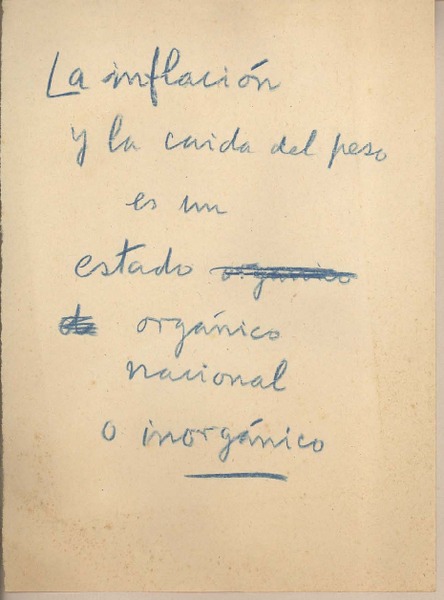 La inflación
y la caida del peso
es un
estado orgánico
orgánico
nacional
o inorgánico